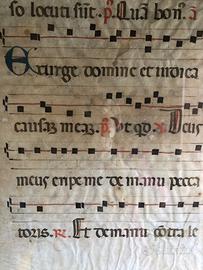 so locuti sūt. p̄. Quā bon᷒. ā
Exurge domine et iudica
causaz meaz. p̄. Vt qd. x. Deus
meus eripe me de manu pecca
toris. R. Et de manu cōtra le